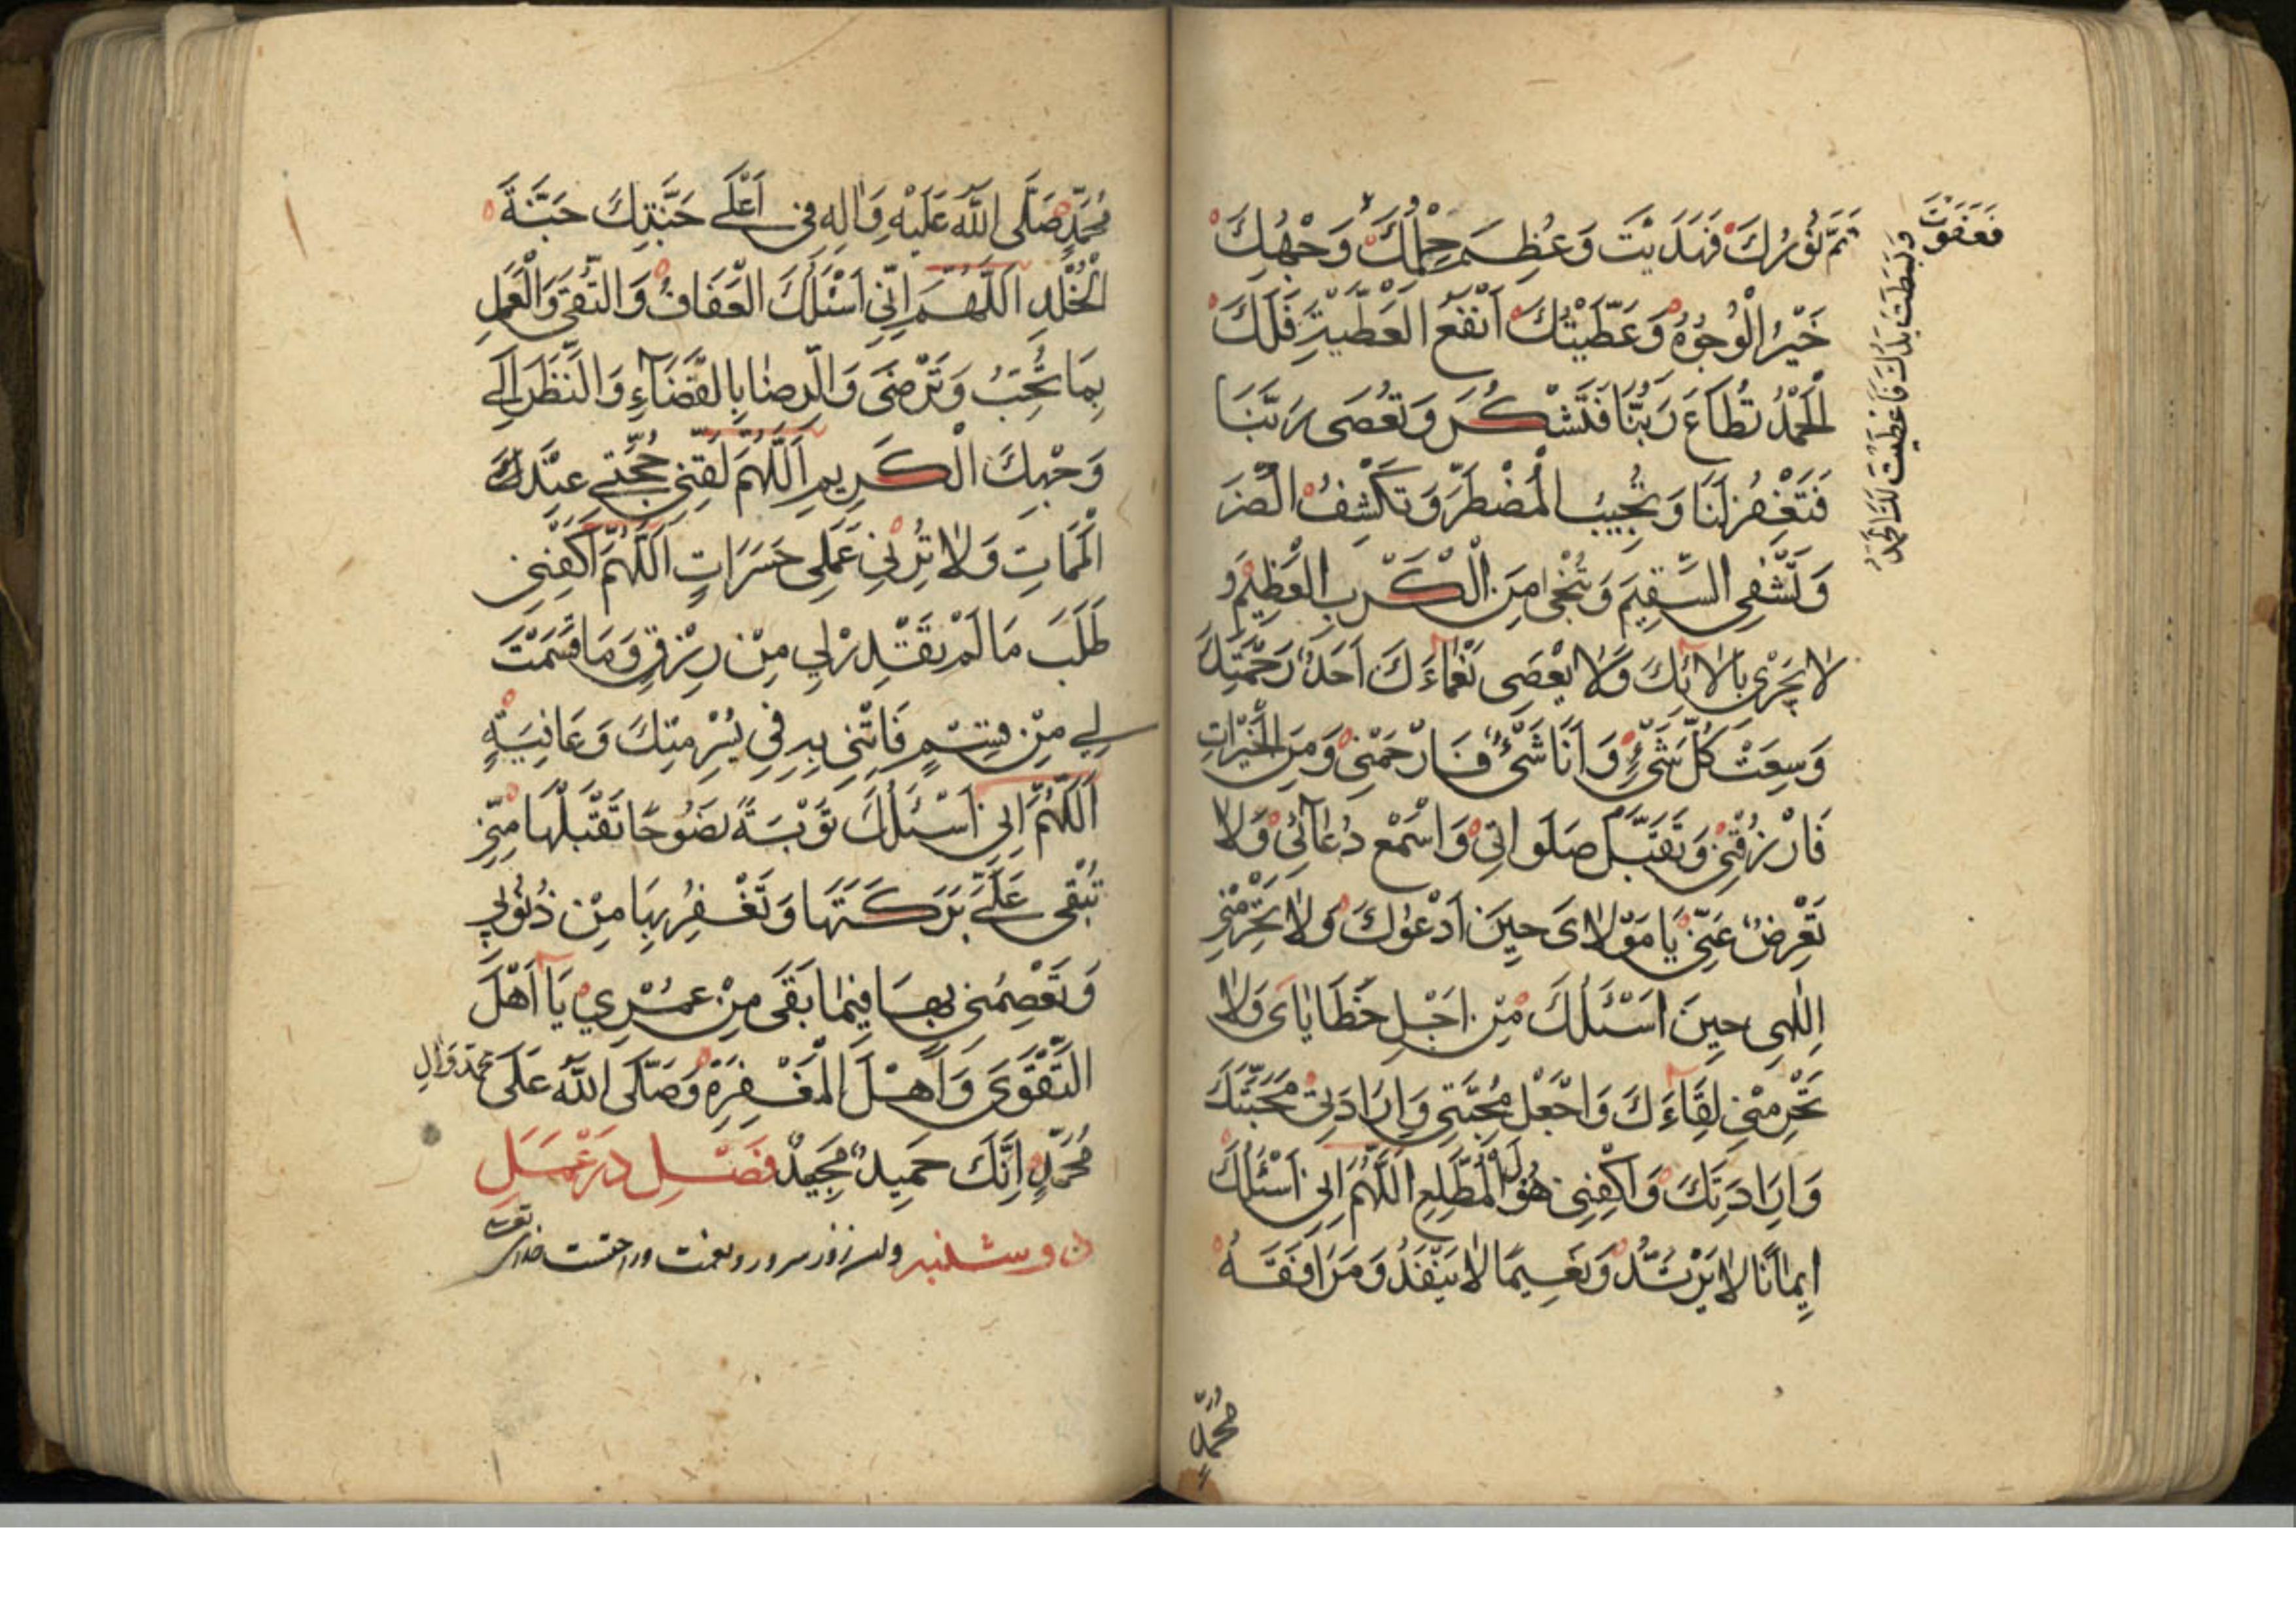 تَمَّ نُورُكَ فَهَدَيْتَ وَعَظُمَ حِلْمُكَ وَجْهُكَ
فَعَفَوْتَ
وَبَسَطْتَ يَدَكَ فَاَعْطَيْتَ لَكَ الْحَمْدُ
خَيْرُ الْوُجُوْهِ وَعَطِيَّتُكَ اَنْفَعُ الْعَطِيَّةِ فَلَكَ
الْحَمْدُ تُطَاعُ رَبَّنَا فَتَشْكُرُ وَتُعْصَى رَبَّنَا
فَتَغْفِرُ لَنَا وَتُجِيبُ الْمُضْطَرَّ وَتَكْشِفُ الضُّرَّ
وَتَشْفِي السَّقِيمَ وَتُنْجِي مِنَ الْكَرْبِ الْعَظِيمِ وَ
لا يَجْزِي بِآلائِكَ وَلا يُعْصَى نَعْمَاءَكَ اَحَدٌ رَحْمَتُكَ
وَسِعَتْ كُلَّ شَيْءٍ وَاَنَا شَيْءٌ فَارْحَمْنِي وَمِنَ الْخَيْرَاتِ
فَارْزُقْنِي وَتَقَبَّلْ صَلَوَاتِي وَاسْمَعْ دُعَائِي وَلا
تُعْرِضْ عَنِّي يَا مَوْلايَ حِينَ اَدْعُوكَ وَلا تَحْرِمْنِي
اِلٰهِي حِينَ اَسْئَلُكَ مِنْ اَجْلِ خَطَايَايَ وَلا
تَحْرِمْنِي لِقَاءَكَ وَاجْعَلْ مَحَبَّتِي وَاِرَادَتِي مَحَبَّتَكَ
وَاِرَادَتَكَ وَاكْفِنِي هَوْلَ الْمُطَّلَعِ اَللّٰهُمَّ اِنِّي اَسْئَلُكَ
اِيمَانًا لا يَرْتَدُّ وَنَعِيمًا لا يَنْفَدُ وَمُرَافَقَةَ
مُحَمَّدٍ
مُحَمَّدٍ صَلَّى اللّٰهُ عَلَيْهِ وَاٰلِهِ فِي اَعْلَى جَنَّتِكَ جَنَّةِ
الْخُلْدِ اَللّٰهُمَّ اِنِّي اَسْئَلُكَ الْعَفَافَ وَالتُّقَى وَالْعَمَلَ
بِمَا تُحِبُّ وَتَرْضَى وَالرِّضَا بِالْقَضَاءِ وَالنَّظَرَ اِلَى
وَجْهِكَ الْكَرِيمِ اَللّٰهُمَّ لَقِّنِي حُجَّتِي عِنْدَ
الْمَمَاتِ وَلا تُرِنِي عَمَلِي حَسَرَاتٍ اَللّٰهُمَّ اكْفِنِي
طَلَبَ مَا لَمْ تُقَدِّرْ لِي مِنْ رِزْقٍ وَمَا قَسَمْتَ
لِي مِنْ قِسْمٍ فَاْتِنِي بِهِ فِي يُسْرٍ مِنْكَ وَعَافِيَةٍ
اَللّٰهُمَّ اِنِّي اَسْئَلُكَ تَوْبَةً نَصُوحًا تَقْبَلُهَا مِنِّي
تُبْقِي عَلَيَّ بَرَكَتَهَا وَتَغْفِرُ بِهَا مِنْ ذُنُوبِي
وَتَعْصِمُنِي بِهَا فِيمَا بَقِيَ مِنْ عُمْرِي يَا اَهْلَ
التَّقْوَى وَاَهْلَ الْمَغْفِرَةِ وَصَلَّى اللّٰهُ عَلَى مُحَمَّدٍ وَاٰلِ
مُحَمَّدٍ اِنَّكَ حَمِيدٌ مَجِيدٌ فَصْل در عَمَلِ
روز سرور و نعمت و راحتست